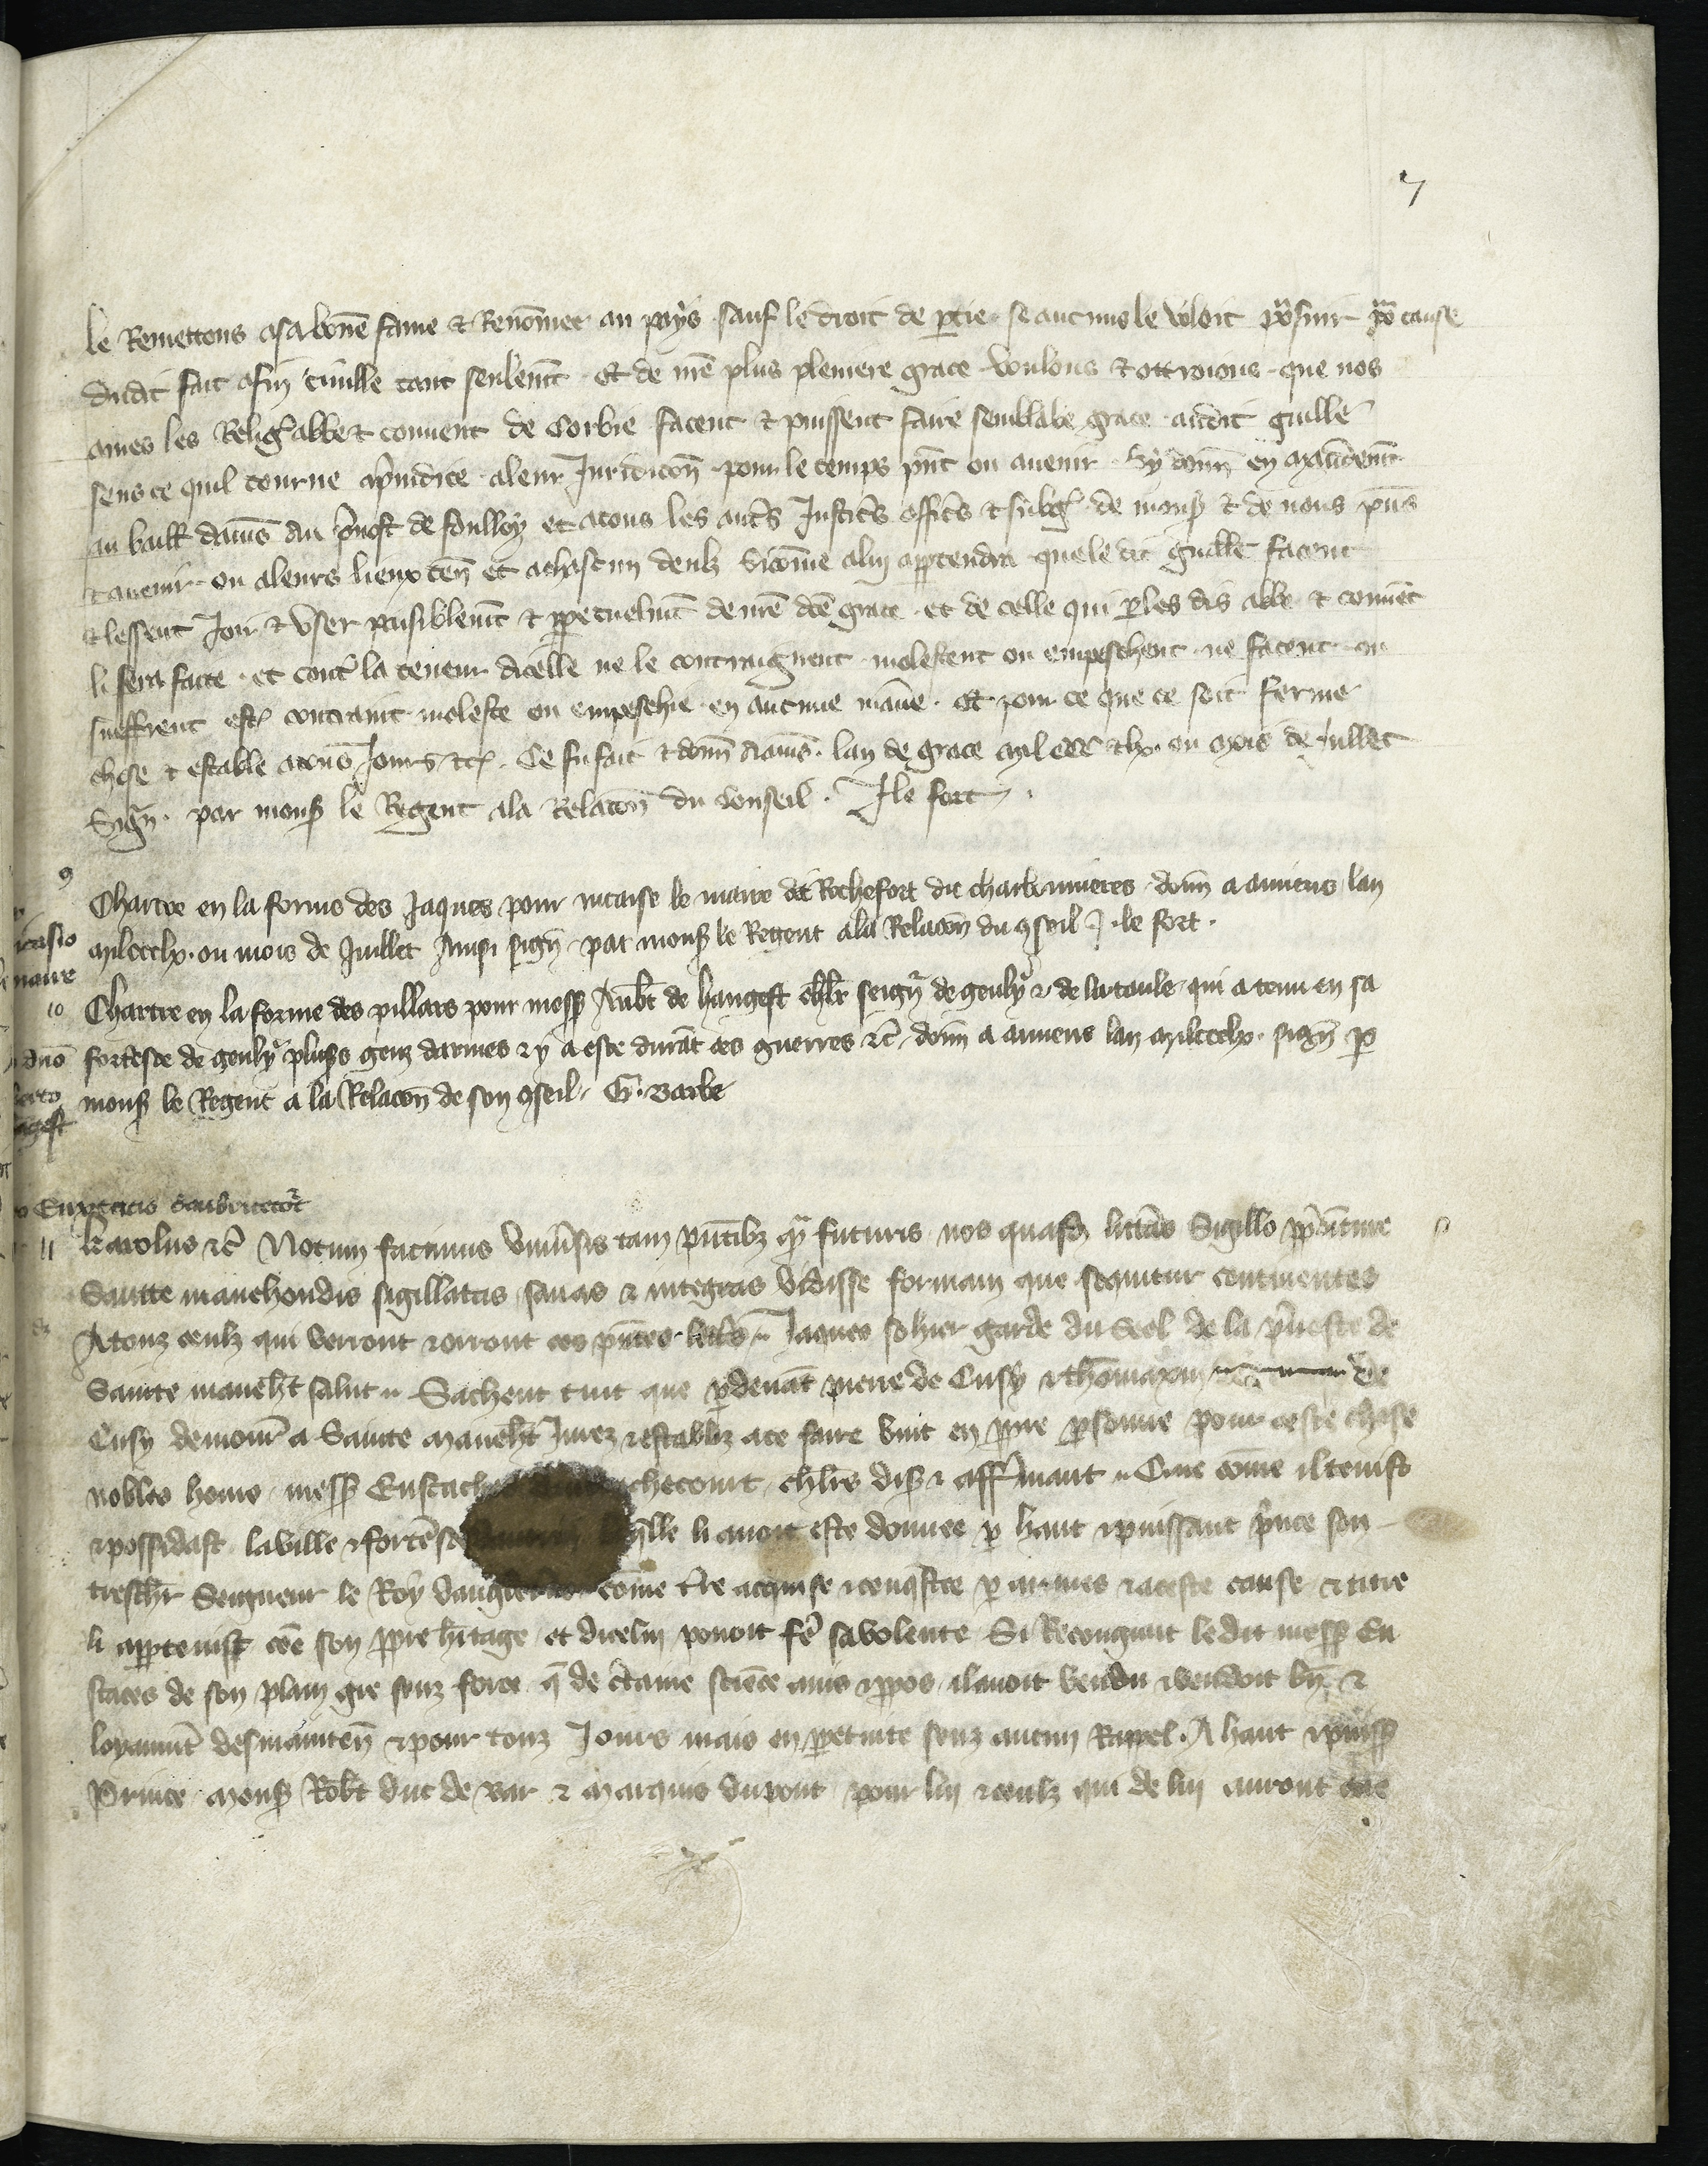 7
le Remettons a sa bonẽ fame & Renom̃ee au pays sauf le droit de ptie se aucuns le voloit po²suir po² cause
dudit fait a fin ciuille tant seulemt . Et de nr̃e plus pleniere grace voulons & ottroions que nos
amez les Relig² abbe & conuent de Corbie facent & puissent faire semblable grace audit guille
sens ce quil tourne a preiudice a leur Juridicõn pour le temps pñt ou auenir . Sy donñ en mandemt
au baill damiẽs au preuost de foulloy et a tous les autres Justicrs officrs & subgz de monss & de nous pñs
& auenir ou a leurs lieux teñ et a chascun deulz sicom̃e a lui appartendra que le dit guille facent
& lessent Joir & vser paisiblemt & ppetuelmt de nr̃e dce grace et de celle qui p les dis abbe & conuent
li sera faite . et contre la teneur dicelle ne le contraignent molestent ou empeschent ne facent ou
sueffrent estre contraint moleste ou empeschie en aucune maniere . Et pour ce que ce soit ferme
chose & estable a tous Jours &c . Ce fu fait & donñ a amiẽs . lan de grace mil ccc & lx . ou mois de Juillet
Sign̄ . par monss le Regent a la Relacõn du conseil . J le fort .
9
Chartre en la forme des Jaques pour nicaise le maire de Rochefort dit charbonnieres donñ a amiens lan
mil ccclx . ou mois de Juillet Ainsi sign̄ par monss le Regent a la Relacõn du 9seil J . le fort .
10
Chartre en la forme des pillars pour mess Aubt de hangest chlr seign² de genly & de la taule qui a tenu en sa
forteste de genly pluss genz darmes & y a este durãt ces guerres &c donñ a amiens lan mil ccclx . sign̄ p
monss le Regent a la Relacõn de son 9seil G . Barbe
11
karolus &c Notum facimus vniusis tam pñtibz qz futuris nos quasd litteras Sigillo ppositure
Sancte manehondis sigillatas sanas & integras vidisse formam que sequitur continentes
A touz ceulz qui verront & orront ces pñtes lettrs Jaques sohier garde du Seel de la preuoste de
Sainte maneht salut . Sachent tuit que p deuãt pierre de Cusy & thomaxin de
Cusy demour a Sainte maneht Jurez & establiz a ce faire vint en ppre psonne pour ceste chose
nobles homs mess Eustach checourt chlrs diss & affmant Que com̃e il tenist
& possidast la ville & fortesce li auoit este donnee p haut & puissant prince son
treschr Seigneur le Roy dangleterre com̃e tre acquise & conqstee p armes & a ceste cause & titre
li appartenist cõe son ppre hritage et dicelui pouoit fe sa volente Si Recongnut ledit mess Eu
staces de son plain gre senz force q de ctaine science auis & ppos il auoit vendu & vendoit bn &
loyaumt desmainteñ & pour touz Jours mais en ppetuite senz aucun Rappel . A haut & puiss
Prince monss Robt duc de Bar & marquis du pont pour lui & ceulz qui de lui auront cause